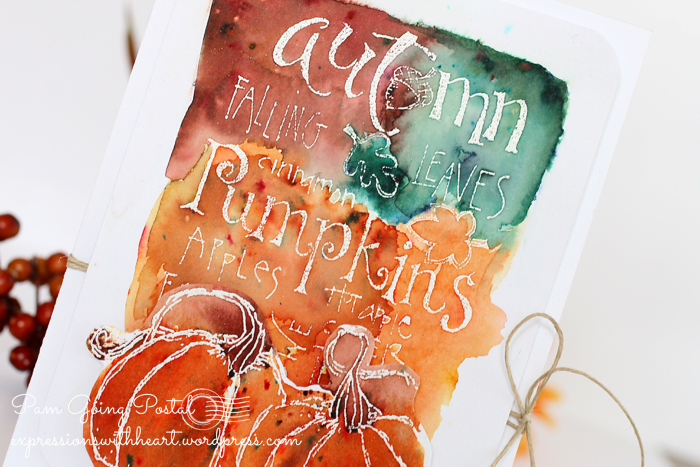 autumn
FALLING LEAVES
cinnamon
Pumpkins
APPLES HOT apple
Pam Going Postal
expressionswithheart.wordpress.com